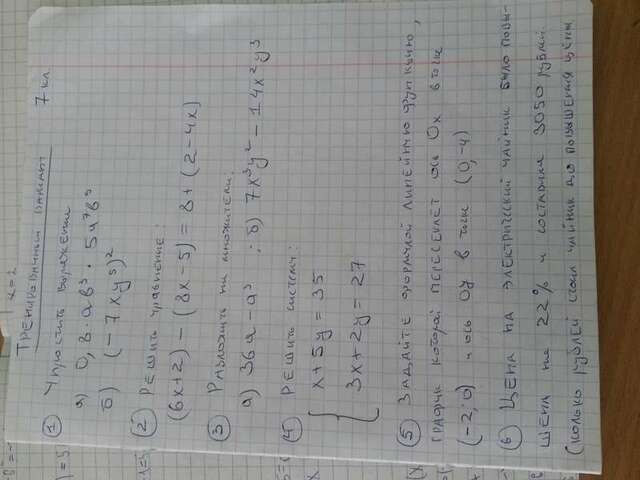 x=2
Тренировочный вариант 7 кл
① Упростить выражения
а) 0,8·ab³ · 5a⁷b⁵
б) (-7xy⁵)²
② Решить уравнение:
(6x+2) - (8x-5) = 8+(2-4x)
③ Разложить на множители:
а) 36a - a³ ; б) 7x³y² - 14x²y³
④ Решить систему:
{ x+5y = 35
3x+2y = 27
⑤ Задайте формулой линейную функцию,
график которой пересекает ось Ox в точке
(-2; 0) и ось Oy в точке (0, -4)
⑥ Цена на электрический чайник было повы-
шена на 22% и составила 3050 рублей.
Сколько рублей стоил чайник до повышения цены